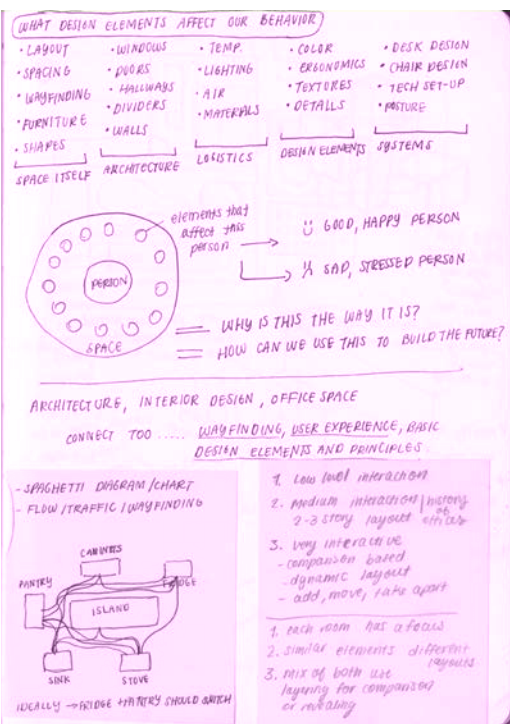 WHAT DESIGN ELEMENTS AFFECT OUR BEHAVIOR
• LAYOUT
• SPACING
• WAYFINDING
• FURNITURE
• SHAPES
SPACE ITSELF
• WINDOWS
• DOORS
• HALLWAYS
• DIVIDERS
• WALLS
ARCHITECTURE
• TEMP.
• LIGHTING
• AIR
• MATERIALS
LOGISTICS
• COLOR
• ERGONOMICS
• TEXTURES
• DETAILS
DESIGN ELEMENTS
• DESK DESIGN
• CHAIR DESIGN
• TECH SET-UP
• POSTURE
SYSTEMS
elements that
affect this
person
GOOD, HAPPY PERSON
SAD, STRESSED PERSON
PERSON
SPACE
WHY IS THIS THE WAY IT IS?
HOW CAN WE USE THIS TO BUILD THE FUTURE?
ARCHITECTURE, INTERIOR DESIGN, OFFICE SPACE
CONNECT TOO ..... WAYFINDING, USER EXPERIENCE, BASIC
DESIGN ELEMENTS AND PRINCIPLES
- SPAGHETTI DIAGRAM / CHART
- FLOW / TRAFFIC / WAYFINDING
PANTRY
FRIDGE
ISLAND
SINK
STOVE
IDEALLY → FRIDGE + PANTRY SHOULD SWITCH
1. Low level interaction
2. Medium interaction / history of offices
2-3 story layout
3. very interactive
- comparison based
- dynamic layout
- add, move, take apart
1. each room has a focus
2. similar elements different
layouts
3. mix of both use
layering for comparison
or revealing